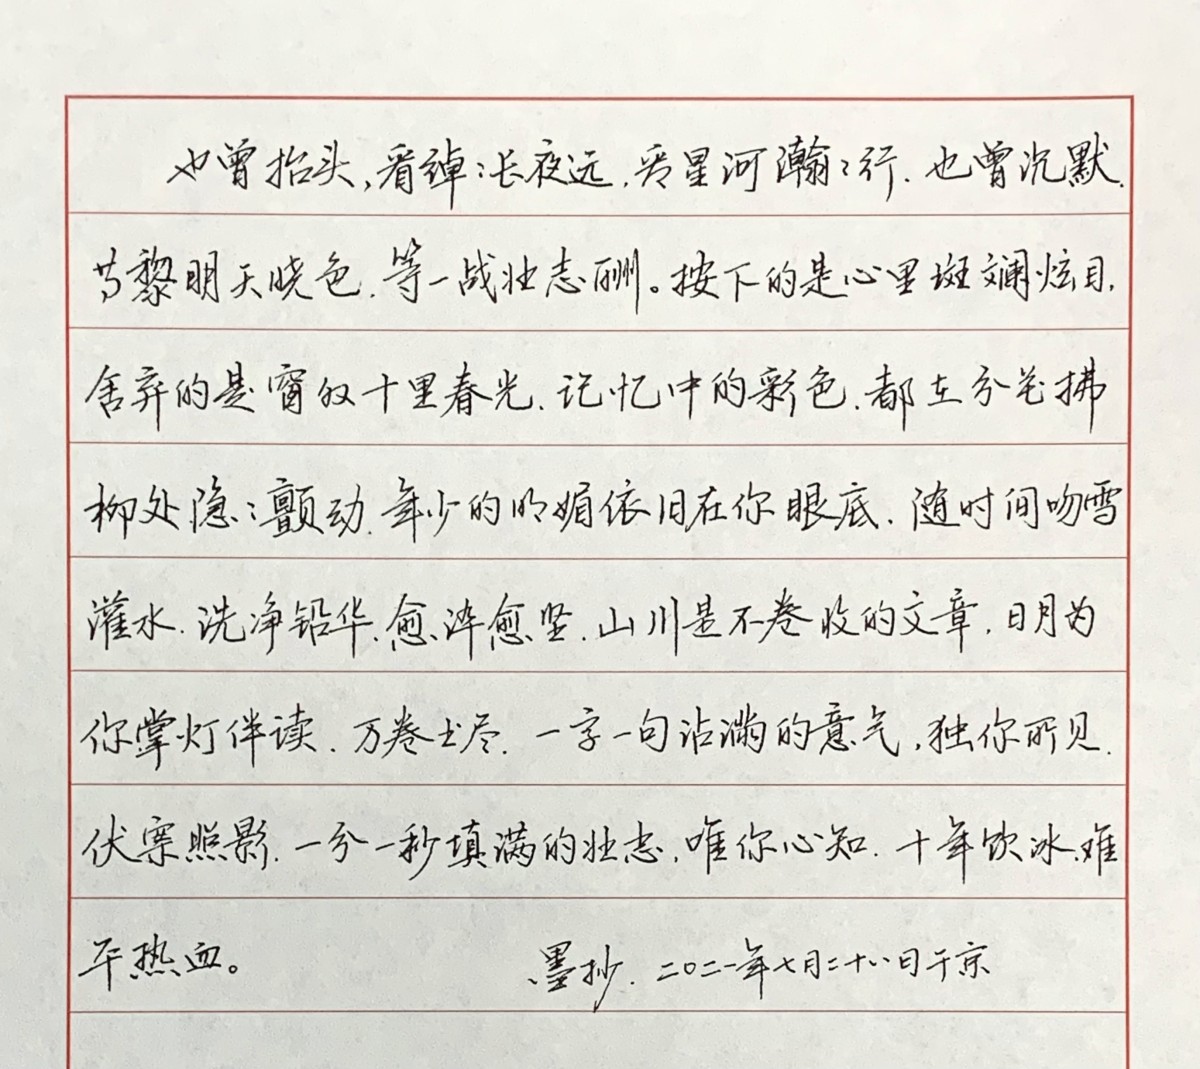 也曾抬头,看绰:长夜远,爱星河瀚:行.也曾沉默.
等黎明天晓色,等一战壮志酬。按下的是心里斑斓炫目,
舍弃的是窗外十里春光.记忆中的彩色,都在分花拂
柳处隐:颤动.年少的明媚依旧在你眼底.随时间吻雪
灌水.洗净铅华,愈淬愈坚.山川是不卷收的文章,日月为
你掌灯伴读.万卷书尽.一字一句沾满的意气,独你所见.
伏案照影.一分一秒填满的壮志,唯你心知.十年饮冰,难
平热血。
墨抄.二〇二一年七月二十八日于京